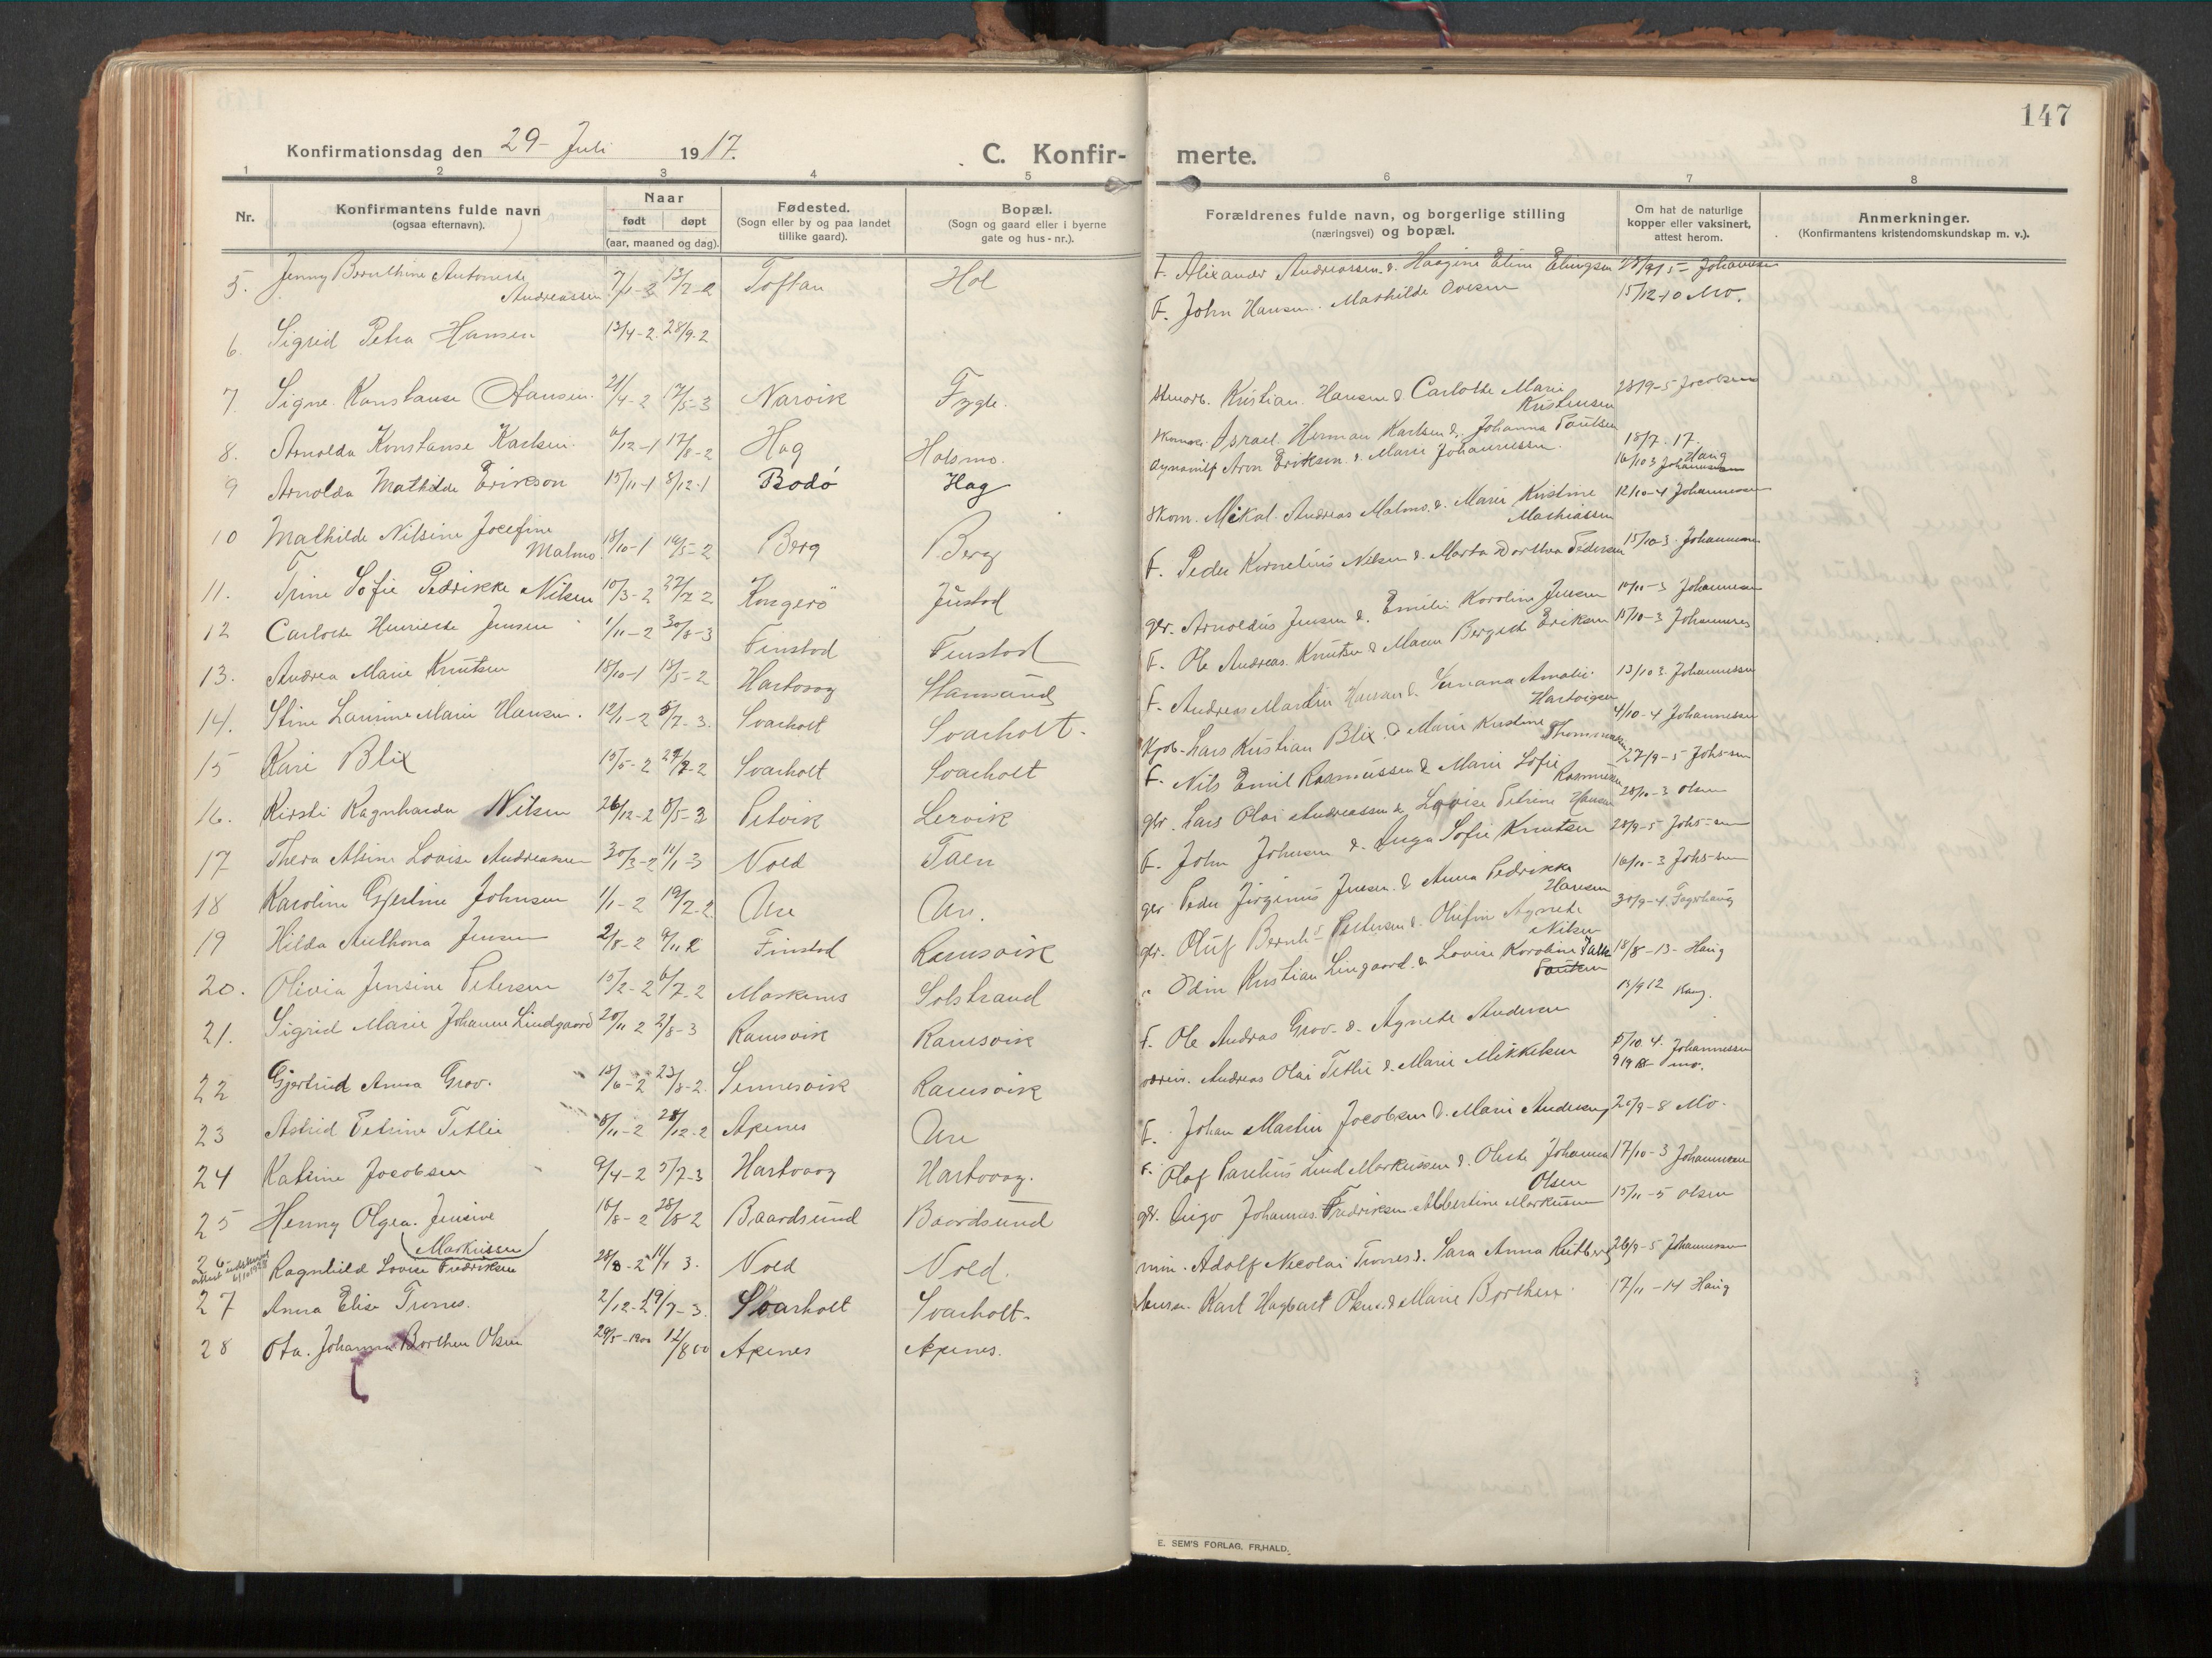 147
Konfirmationsdag den 29 Juli 1917.
C. Konfir- merte.
1 2 3 4 5 6 7 8
Nr.
Konfirmantens fulde navn
(ogsaa efternavn).
Naar
født døpt
(aar, maaned og dag).
Fødested.
(Sogn eller by og paa landet
tillike gaard).
Bopæl.
(Sogn og gaard eller i byerne
gate og hus-nr.).
Forældrenes fulde navn, og borgerlige stilling
(næringsvei) og bopæl.
Om hat de naturlige
kopper eller vaksinert,
attest herom.
Anmerkninger.
(Konfirmantens kristendomskundskap m. v.).
5. Jenny Bernthine Antonette
Andreassen 7/1-2 13/7-2 Toftan Hol
6. Sigrid Petra Hansen 13/4-2 28/9-2
7. Signe Konstanse Hansen 21/4-2 17/5-3 Narvik Fygle
8. Arnolda Konstanse Karlsen 6/12-1 17/8-2 Hag Holsmo.
9 Arnolda Mathilde Erikson 15/11-1 8/12-1 Bodø Hag
10 Mathilde Nilsine Josefine
Malmo 18/10-1 19/5-2 Berg Berg
11. Trine Sofie Pedrikke Nilsen 10/3-2 27/7-2 Kongerö Justad
12 Carlotte Henriette Jensen 1/11-2 30/8-3 Finstad Finstad
13. Andrea Marie Knutsen 18/10-1 18/5-2 Hartvaag Hamsund
14. Stine Laurine Marie Hansen. 12/1-2 5/7-3. Svarholt Svarholt-
15 Kari Blix 15/5-2 27/7-2 Svarholt Svarholt
16. Kirsti Ragnharda Nilsen 26/12-2 8/5-3 Petvik Lervik
17 Thera Alsine Lovise Andreassen 30/3-2 11/1-3 Vold Taen
18 Karoline Gjertine Johnsen 1/1-2 19/7-2 Ure Ure.
19 Hilda Anthona Jensen 2/8-2 9/11-2 Finstad Ramsvik
20. Olivia Jensine Petersen 15/2-2 6/7-2 Moskenes Solstrand
21. Sigrid Marie Johanne Lindgaard 20/11-2 2/8-3 Ramsvik Ramsvik
22 Gjertrud Anna Grov. 18/6-2 23/8-2. Sennesvik Ramsvik
23 Astrid Petrine Tetlie 8/11-2 28/12-2 Apenes Ure
24 Katrine Jacobsen 9/4-2 5/7-3 Hartvaag Hartvaag.
25 Henny Olgea. Jensine
(Markussen) 16/8-2 28/8-2 Baardsund Baardsund
26 Ragnhild Lovise Fredriksen 28/8-2 11/1 3. Vold Vold.
27 Anna Elise Trones. 2/12-2 19/7-3. Svarholt Svarholt-
28 Ota. Johanna Borthen Olsen 29/5-1900 12/8 00 Apenes Apenes.
F. Alexander Andreassen. & Haagine Eline Elingsen 28/9 5 - Johannessen
F. John Hansen. Mathilde Ovesen 15/12-10 Mo.
Stenarb. Kristian Hansen & Carlotte Marie
Kristensen 28/9-5 Jacobsen
Skomak. Israel Herman Karlsen & Johanna Paulsen 18/7. 17. Haug
Aron Eriksen. & Marie Johannessen. 16/10 3 Johannessen
Skom. Mikal Andreas Malmo. & Marie Kristine
Mathiassen 12/10-4 Johannessen
F. Peder Kornelius Nilsen & Marta Dorthea Pedersen 15/10-3. Johannessen
gbr. Arnoldus Jensen & Emilie Karoline Jensen 10/11-3 Johannessen
F. Ole Andreas Knutsen & Maren Bergitte Eriksen 15/10-3 Johannessen
F. Andreas Martin Hansen & Amalie
Hartvigsen 13/10 3. Johannessen
Lars Kristian Blix & Marie Kristine
4/10-4 Johannessen
F. Nils Emil Rasmussen & Marie Sofie
Rasmussen 27/9-5 Johs-sen
gbr. Lars Olai Andreassen & Lovise Petrine Hansen 28/10-3 Olsen
F. John Johnsen & Inga Sofie Knutsen 28/9-5 Johs-sen
gbr Peder Jörginus Jensen. & Anna Pedrikke
Hansen 16/10-3 Johs-sen
gbr. Oluf Bernh. Pettersen & Olufine Agnete
Nilsen 30/9-4. Fagerhaug
" Odin Kristian Lingaard. & Lovise Karoline
Paulsen 18/8-13- Haug
F. Ole Andreas Grov- & Agnete Andersen 13/9 12 Haug.
Andreas Olai Tetlie & Marie Mikkelsen 5/10 4. Johannessen
9/9 Mo.
F. Johan Martin Jacobsen & Marie Andersen 20/9-8 Mo.
F. Olaf Paulius Lind Markussen & Oleste Johanna
Olsen 17/10-3 Johannessen
gbr. Vigo Johannes Fredriksen Albertine Markussen 15/11-5 Olsen
min. Adolf Necolai Trones & Sara Anna Rutberg 26/9-5 Johannessen
Karl Hagbart Olsen & Marie Borthen. 17/11-14 Haug
E. SEM'S FORLAG, FR.HALD.